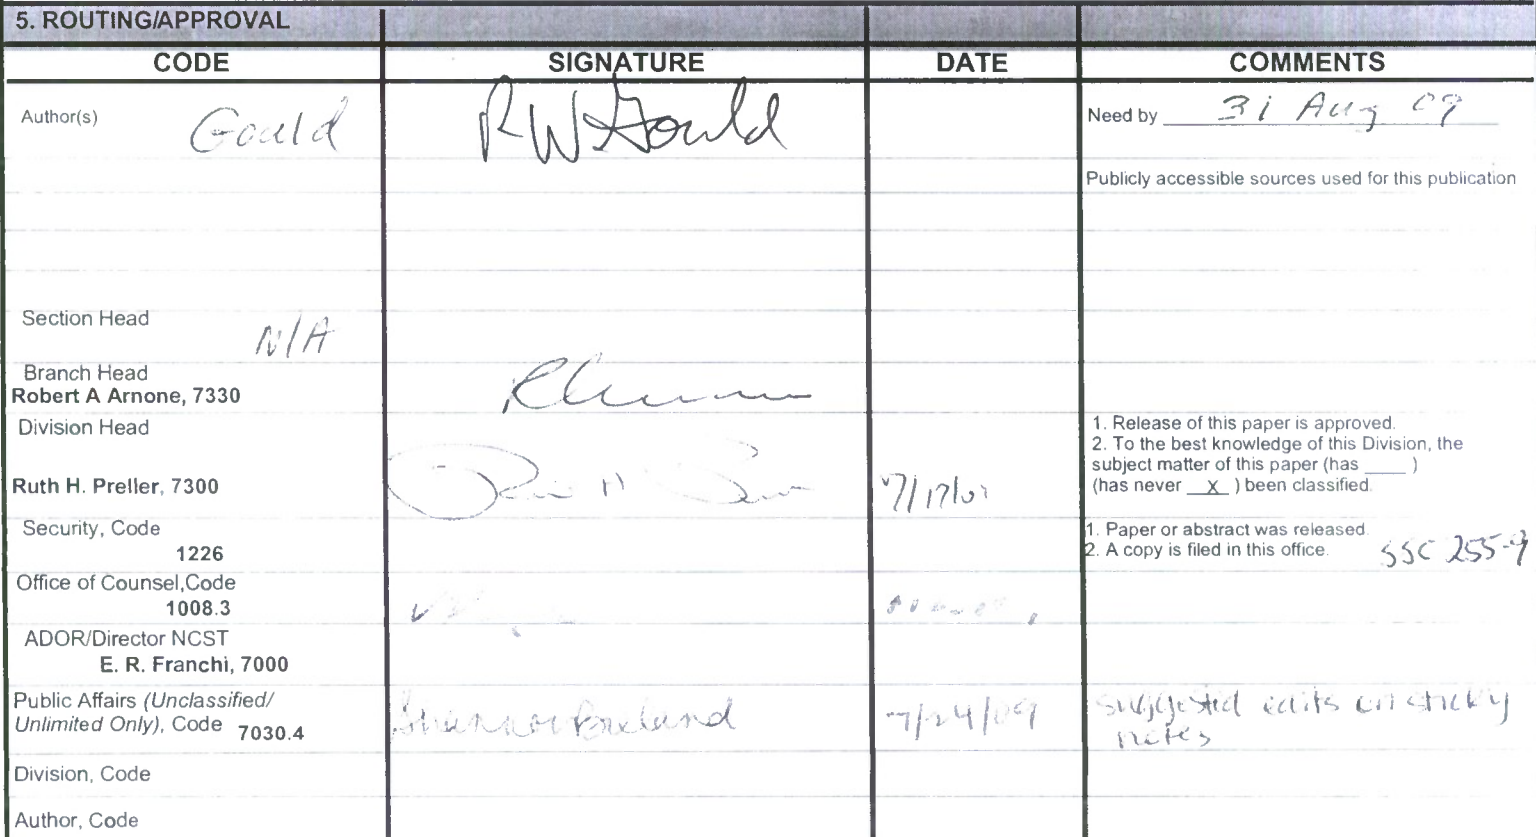 5. ROUTING/APPROVAL
CODE SIGNATURE DATE COMMENTS
Author(s) Gould RW Gould Need by 31 Aug 09
Publicly accessible sources used for this publication
Section Head
N/A
Branch Head
Robert A Arnone, 7330
Division Head
Ruth H. Preller, 7300
1. Release of this paper is approved.
2. To the best knowledge of this Division, the
subject matter of this paper (has ____ )
(has never _X_ ) been classified.
Security, Code
1226
1. Paper or abstract was released.
2. A copy is filed in this office. SSC 255-9
Office of Counsel,Code
1008.3
ADOR/Director NCST
E. R. Franchi, 7000
Public Affairs (Unclassified/
Unlimited Only), Code 7030.4
7/24/09
suggested edits on sticky
notes
Division, Code
Author, Code